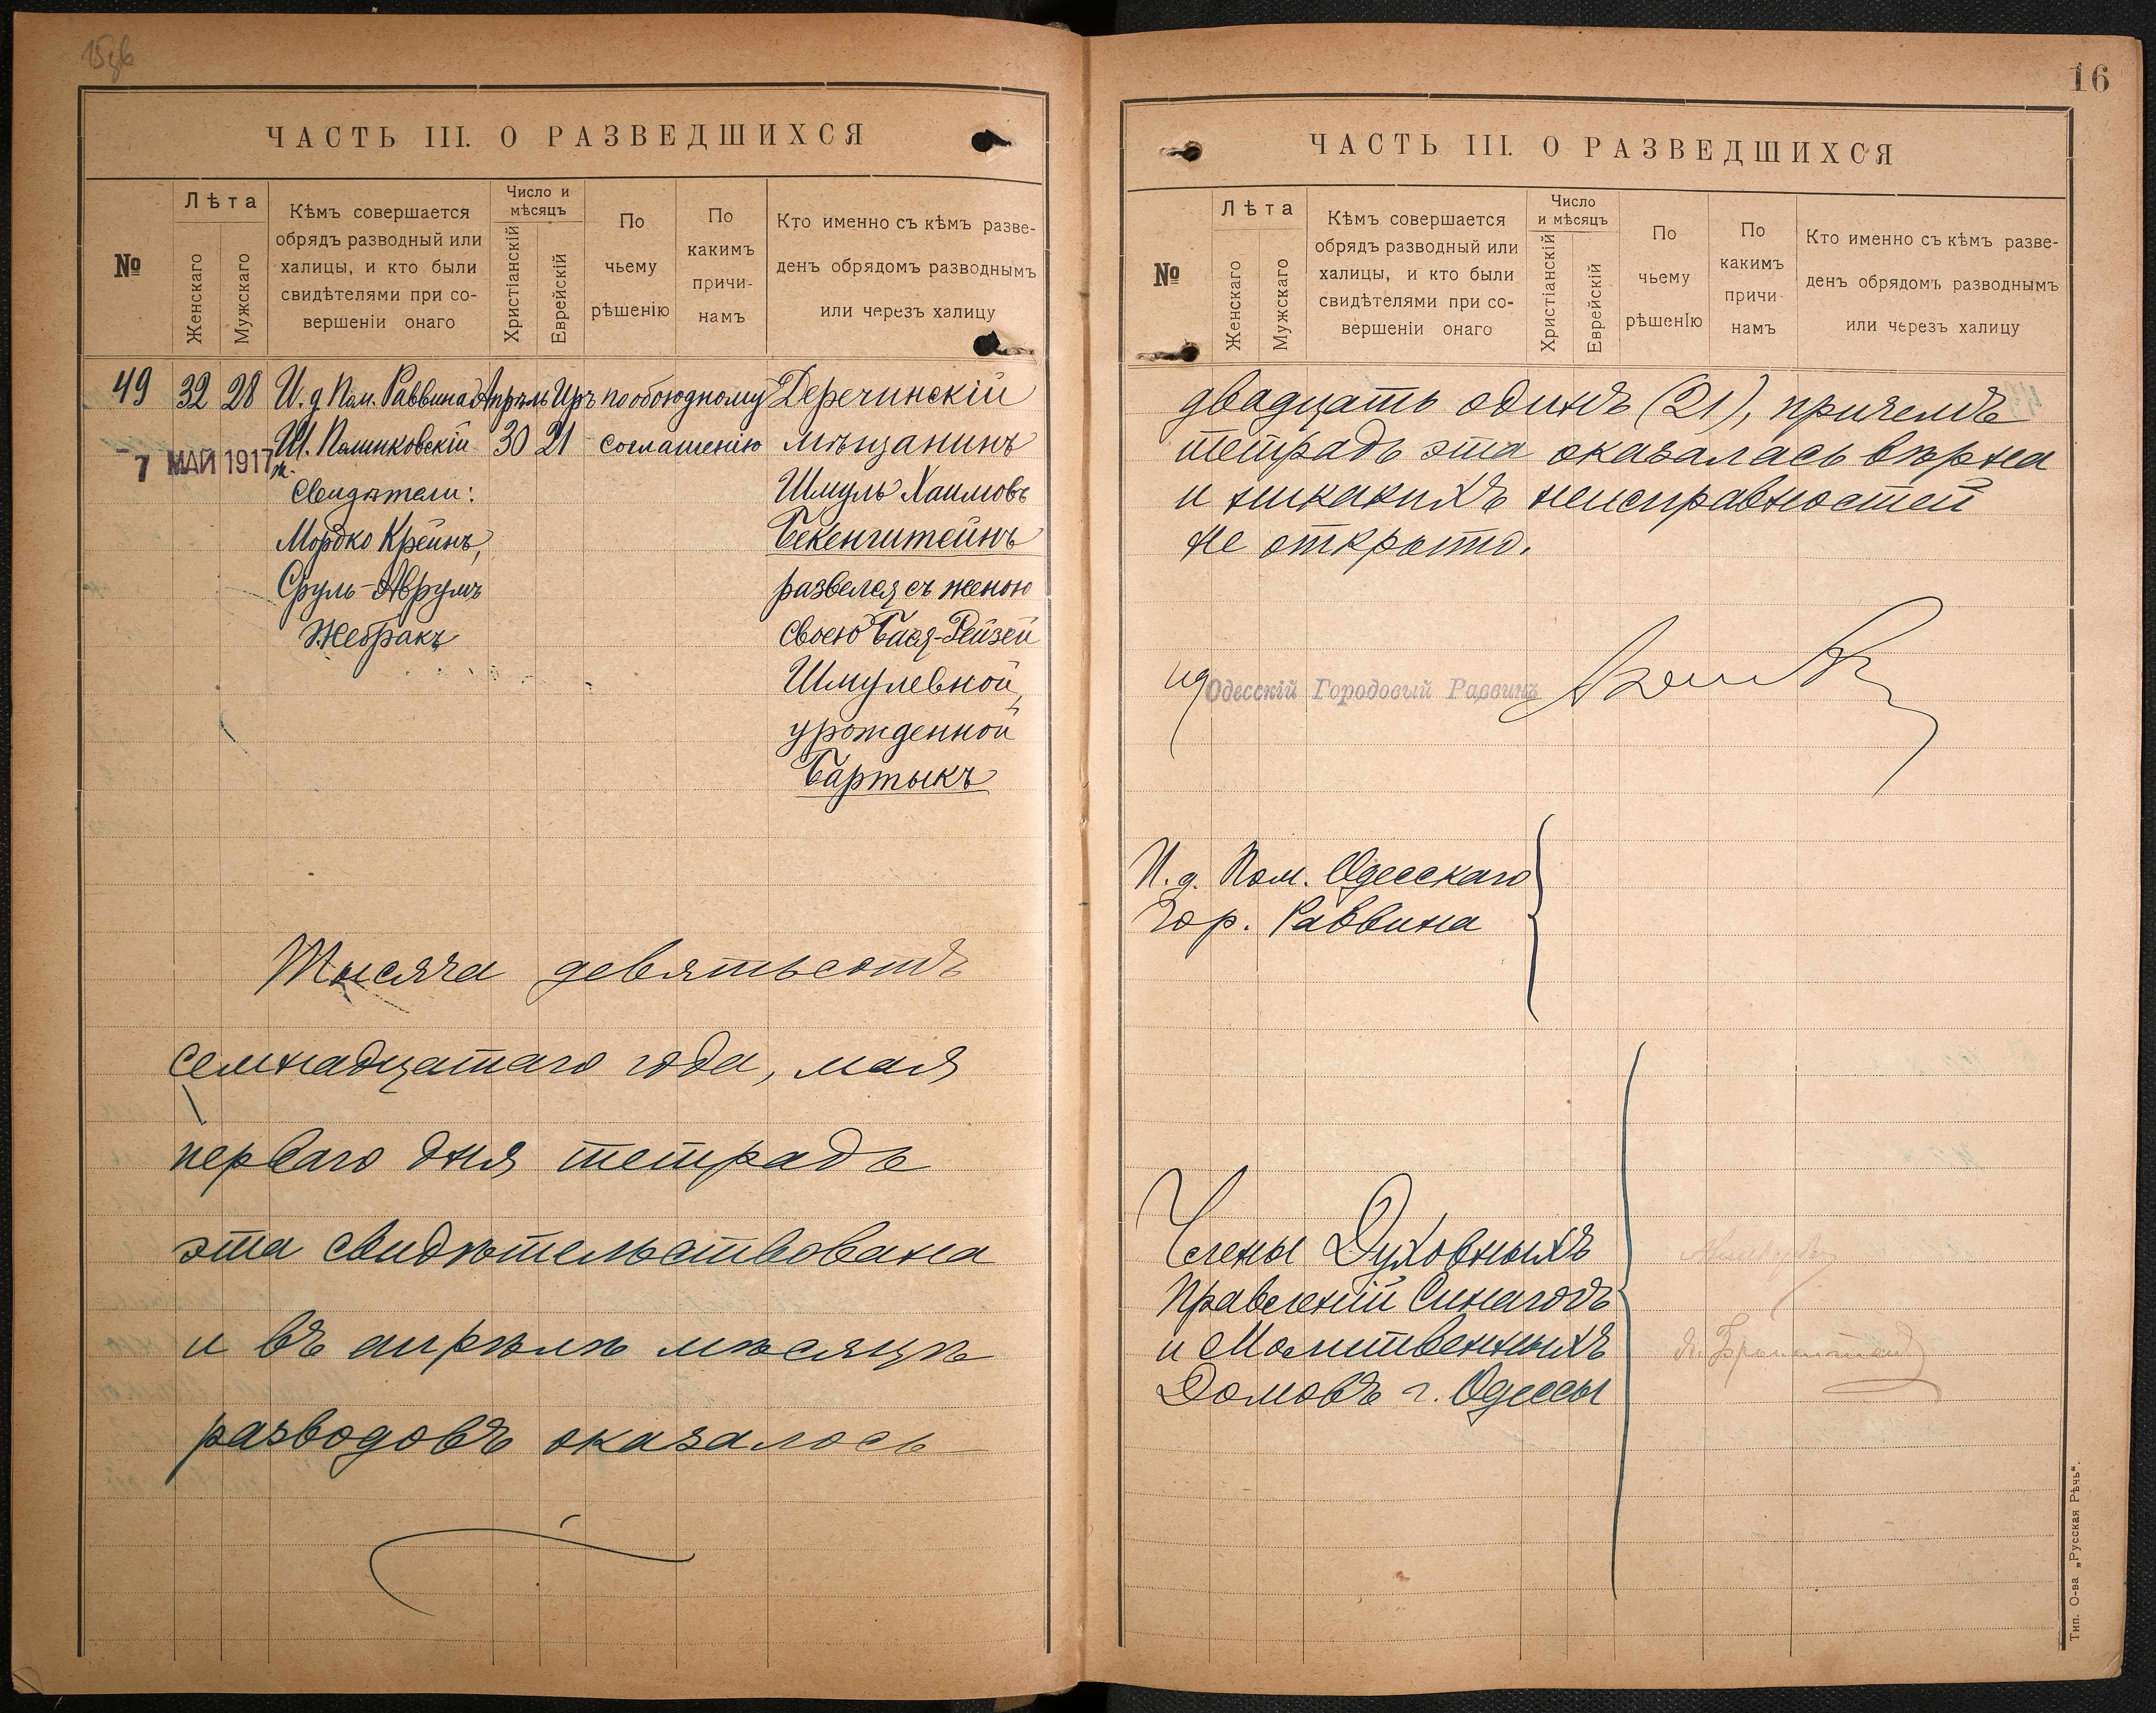 16
ЧАСТЬ III. О РАЗВЕДШИХСЯ
№
Лѣта
Женскаго
Мужскаго
Кѣмъ совершается
обрядъ разводный или
халицы, и кто были
свидѣтелями при со-
вершеніи онаго
Число и
мѣсяцъ
Христіанскій
Еврейскій
По
чьему
рѣшенію
По
какимъ
причи-
намъ
Кто именно съ кѣмъ разве-
денъ обрядомъ разводнымъ
или черезъ халицу
49 32 28 И. д. Пом. Раввина Апрѣль Иръ по обоюдному Деречинскій
30 21 соглашенію мѣщанинъ
7 МАЙ 1917
Свидѣтели: Шмуль Хаимовъ
Мордко Крейнъ, Бекенштейнъ
Сруль-Аврумъ развелся съ женою
Жебракъ своею Бася-Рейзей
Шмулевной,
урожденной
Бартыкъ
Тысяча девятьсотъ
семнадцатаго года, мая
перваго дня тетрадь
эта свидѣтельствована
и въ апрѣлѣ мѣсяцѣ
разводовъ оказалось
ЧАСТЬ III. О РАЗВЕДШИХСЯ
№
Лѣта
Женскаго
Мужскаго
Кѣмъ совершается
обрядъ разводный или
халицы, и кто были
свидѣтелями при со-
вершеніи онаго
Число
и мѣсяцъ
Христіанскій
Еврейскій
По
чьему
рѣшенію
По
какимъ
причи-
намъ
Кто именно съ кѣмъ разве-
денъ обрядомъ разводнымъ
или черезъ халицу
двадцать одинъ (21), причемъ
тетрадь эта оказалась вѣрна
и никакихъ неисправностей
не открыто.
ид Одесскій Городовый Раввинъ
И. д. Пом. Одесскаго
Гор. Раввина
Члены Духовныхъ
Правленій Синагогъ
и Молитвенныхъ
Домовъ г. Одессы
Тип. О-ва „Русская Рѣчь“.